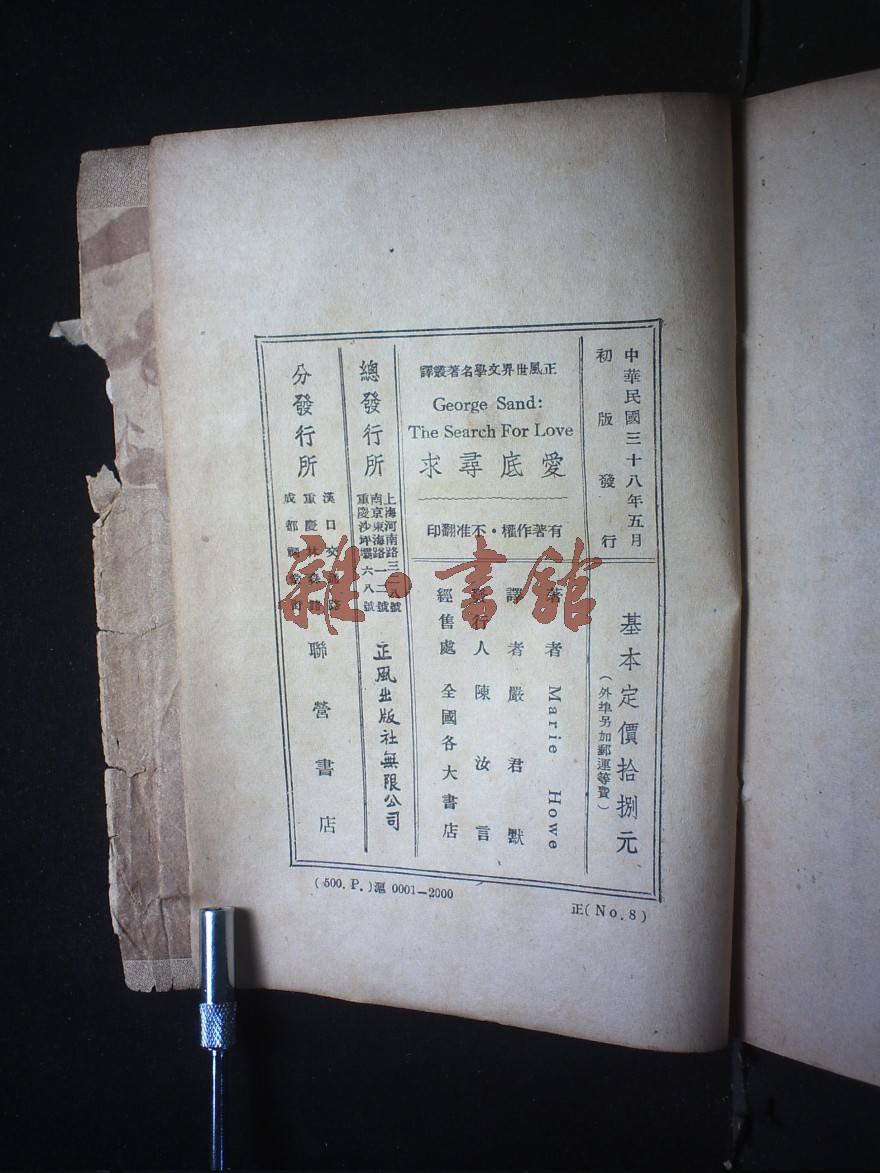 中華民國三十八年五月
初版發行
基本定價拾捌元
（外埠另加郵運等費）
正風世界文學名著叢譯
George Sand:
The Search For Love
愛底尋求
有著作權・不准翻印
著者 Marie Howe
譯者 嚴君默
發行人 陳汝言
經售處 全國各大書店
總發行所
上海河南路三二八號
南京東海路一二號
重慶沙坪壩六八號
正風出版社無限公司
分發行所
漢口交通路
重慶林森路
成都祠堂街
聯營書店
(500. P.)滬 0001—2000
正(No.8)
雜·書館